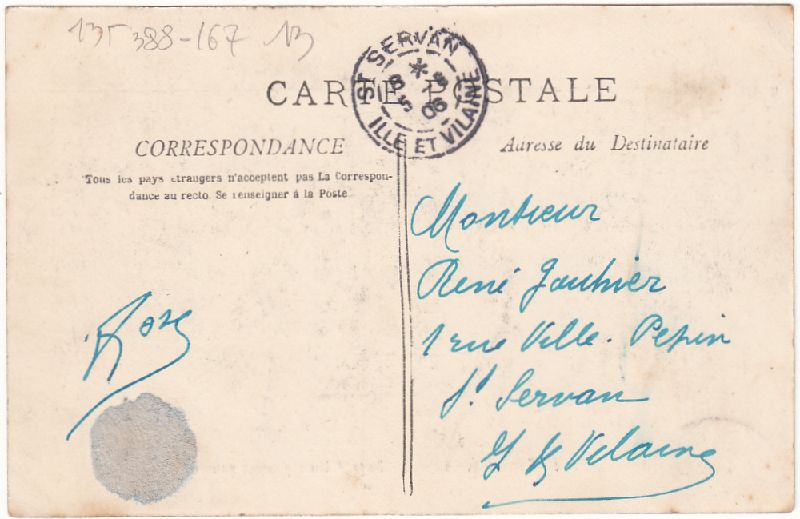 135 388-167 13
ST SERVAN
ILLE ET VILAINE
CARTE POSTALE
CORRESPONDANCE
Tous les pays étrangers n'acceptent pas La Correspon-
dance au recto. Se renseigner à la Poste.
Adresse du Destinataire
Monsieur
René Gauthier
1 rue Ville-Pepin
St Servan
I & Vilaine
Rose